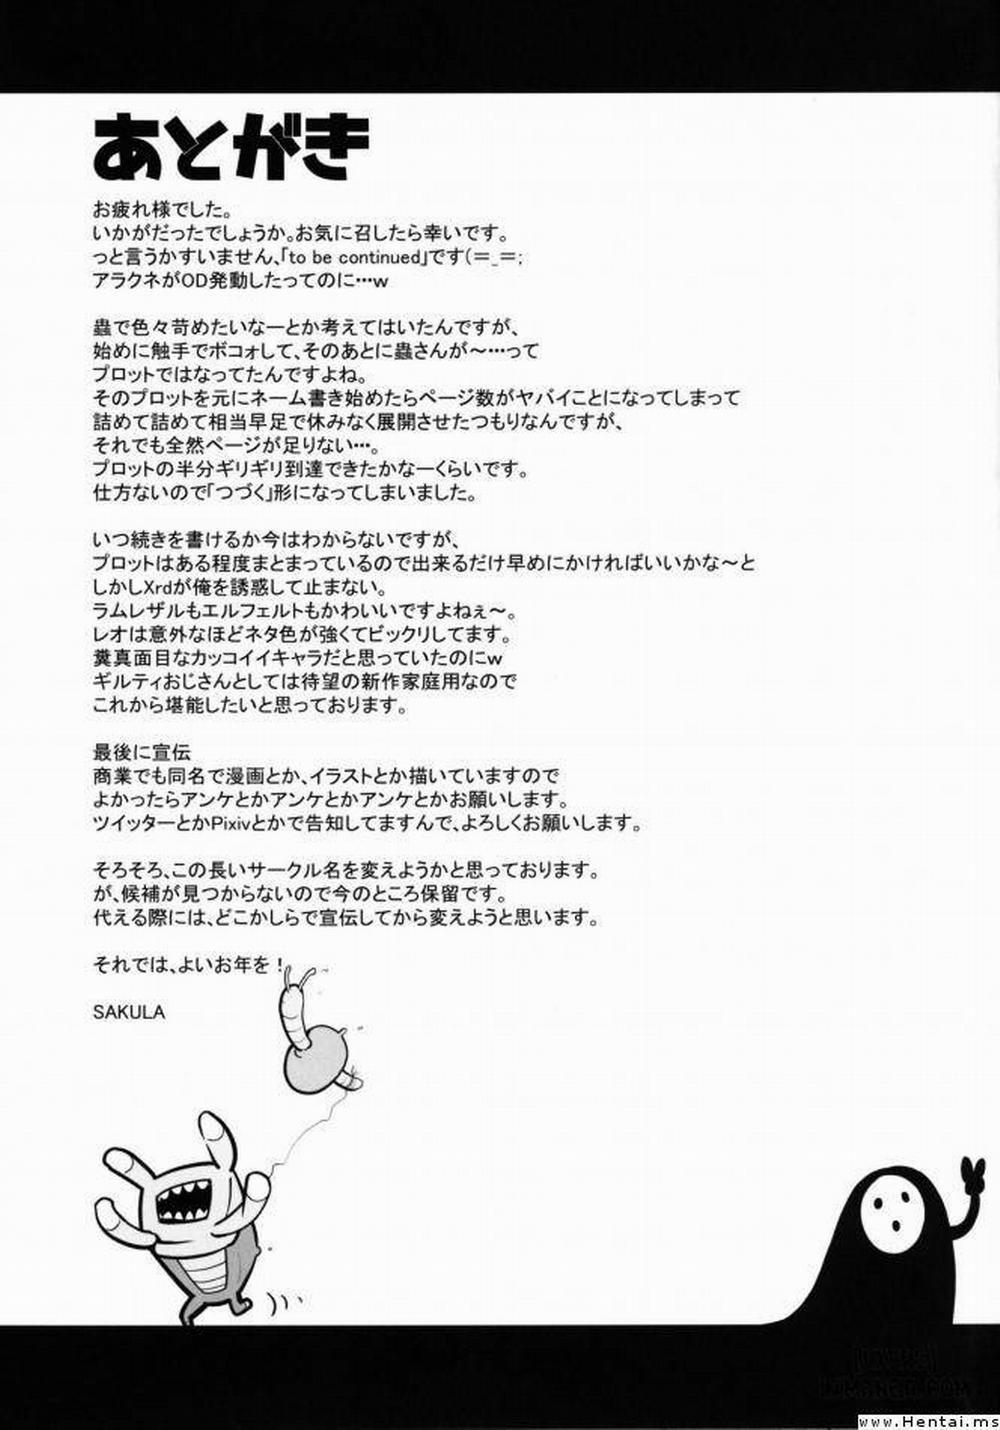 あとがき
お疲れ様でした。
いかがだったでしょうか。お気に召したら幸いです。
っと言うかすいません、「to be continued」です(＝_＝;
アラクネがOD発動したってのに…w
蟲で色々苛めたいなーとか考えてはいたんですが、
始めに触手でボコォして、そのあとに蟲さんが～…って
プロットではなってたんですよね。
そのプロットを元にネーム書き始めたらページ数がヤバイことになってしまって
詰めて詰めて相当早足で休みなく展開させたつもりなんですが、
それでも全然ページが足りない…。
プロットの半分ギリギリ到達できたかなーくらいです。
仕方ないので「つづく」形になってしまいました。
いつ続きを書けるか今はわからないですが、
プロットはある程度まとまっているので出来るだけ早めにかければいいかな～と
しかしXrdが俺を誘惑して止まない。
ラムレザルもエルフェルトもかわいいですよねぇ～。
レオは意外なほどネタ色が強くてビックリしてます。
糞真面目なカッコイイキャラだと思っていたのにw
ギルティおじさんとしては待望の新作家庭用なので
これから堪能したいと思っております。
最後に宣伝
商業でも同名で漫画とか、イラストとか描いていますので
よかったらアンケとかアンケとかアンケとかお願いします。
ツイッターとかPixivとかで告知してますんで、よろしくお願いします。
そろそろ、この長いサークル名を変えようかと思っております。
が、候補が見つからないので今のところ保留です。
代える際には、どこかしらで宣伝してから変えようと思います。
それでは、よいお年を！
SAKULA
www.Hentai.ms